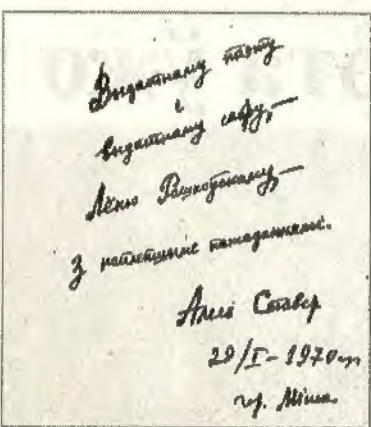 Выдатнаму паэту
і
выдатнаму сябру, —
Лёню Пашкоўскаму, —
З найлепшымі пажаданнямі.
Алесь Ставер
29/I – 1970 г.
гор. Мінск.